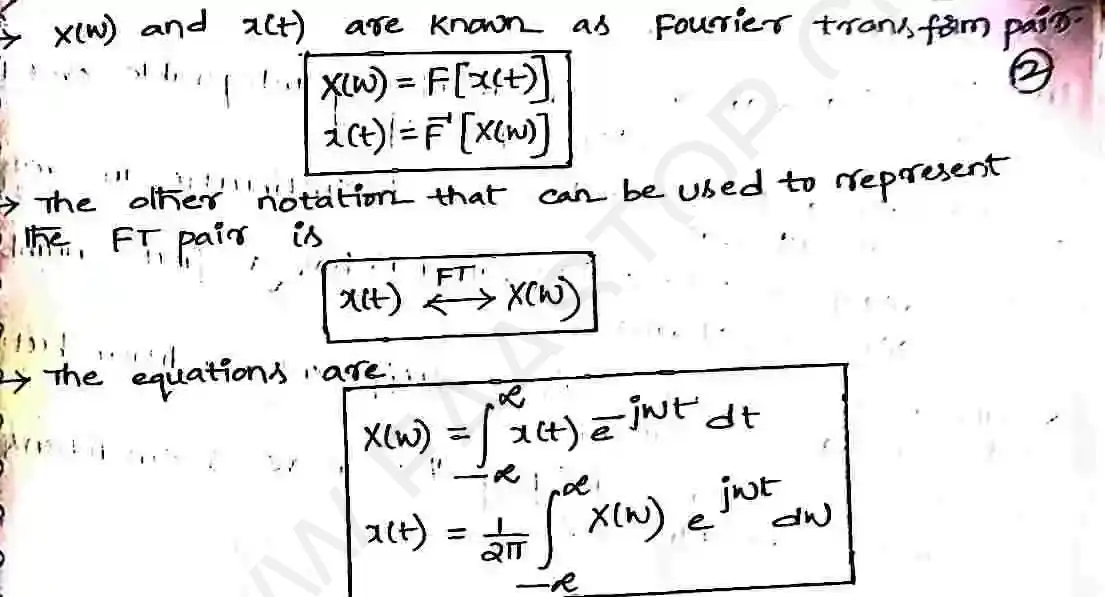 → X(w) and x(t) are known as Fourier transform pair.
②
X(w) = F[x(t)]
x(t) = F⁻[X(w)]
→ The other notation that can be used to represent
the FT pair is
x(t) ←FT→ X(w)
→ The equations are
X(w) = ∫_{-∞}^{∞} x(t) e^{-jwt} dt
x(t) = 1/2π ∫_{-∞}^{∞} X(w) e^{jwt} dw